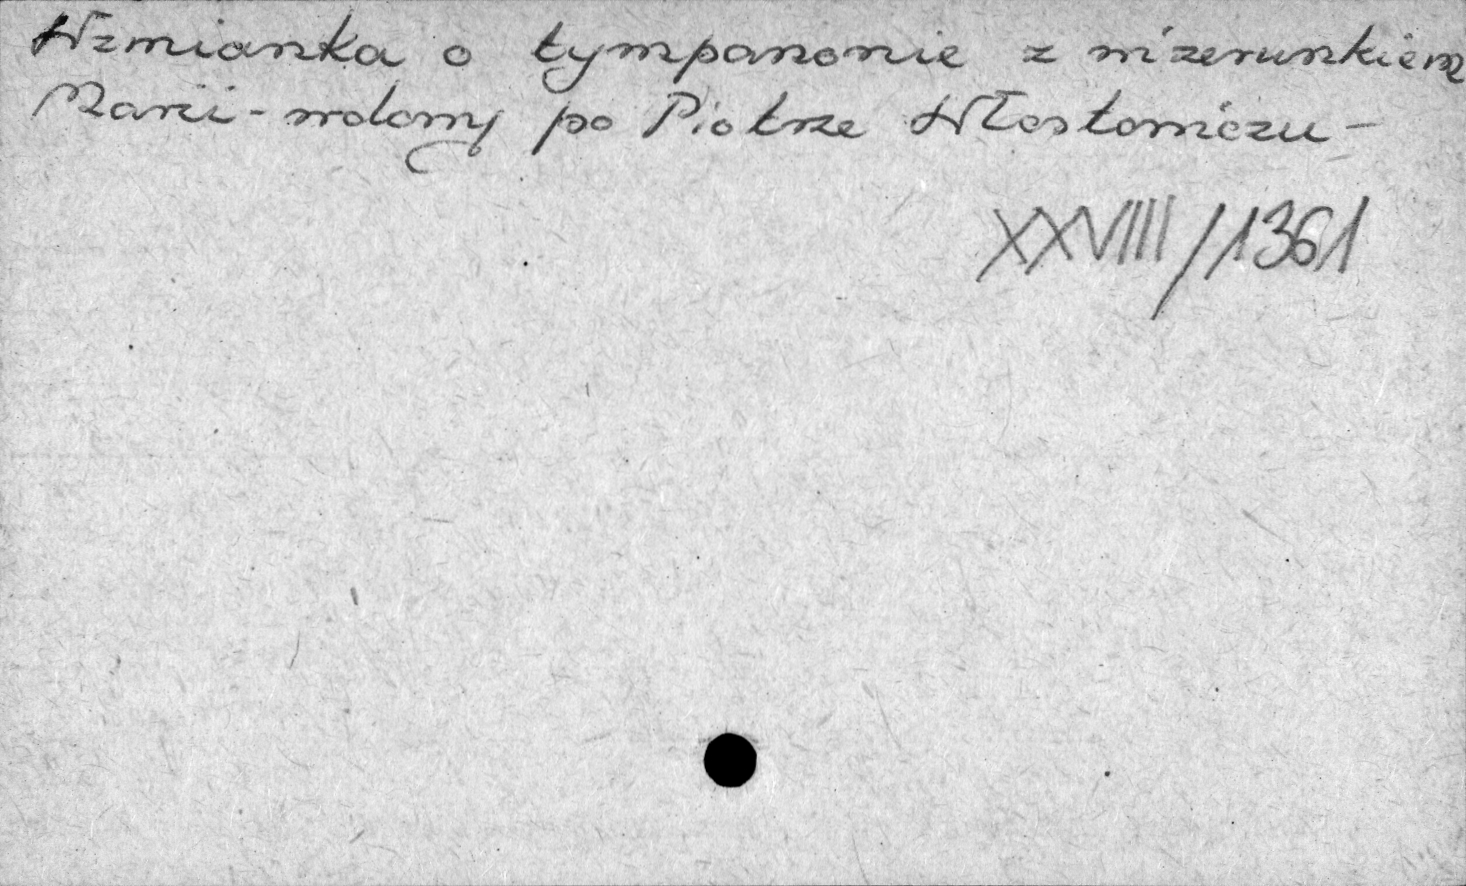 Wzmianka o tympanonie z wizerunkiem
Marii - wdowy po Piotrze Włostowiczu -
XXVIII/1361